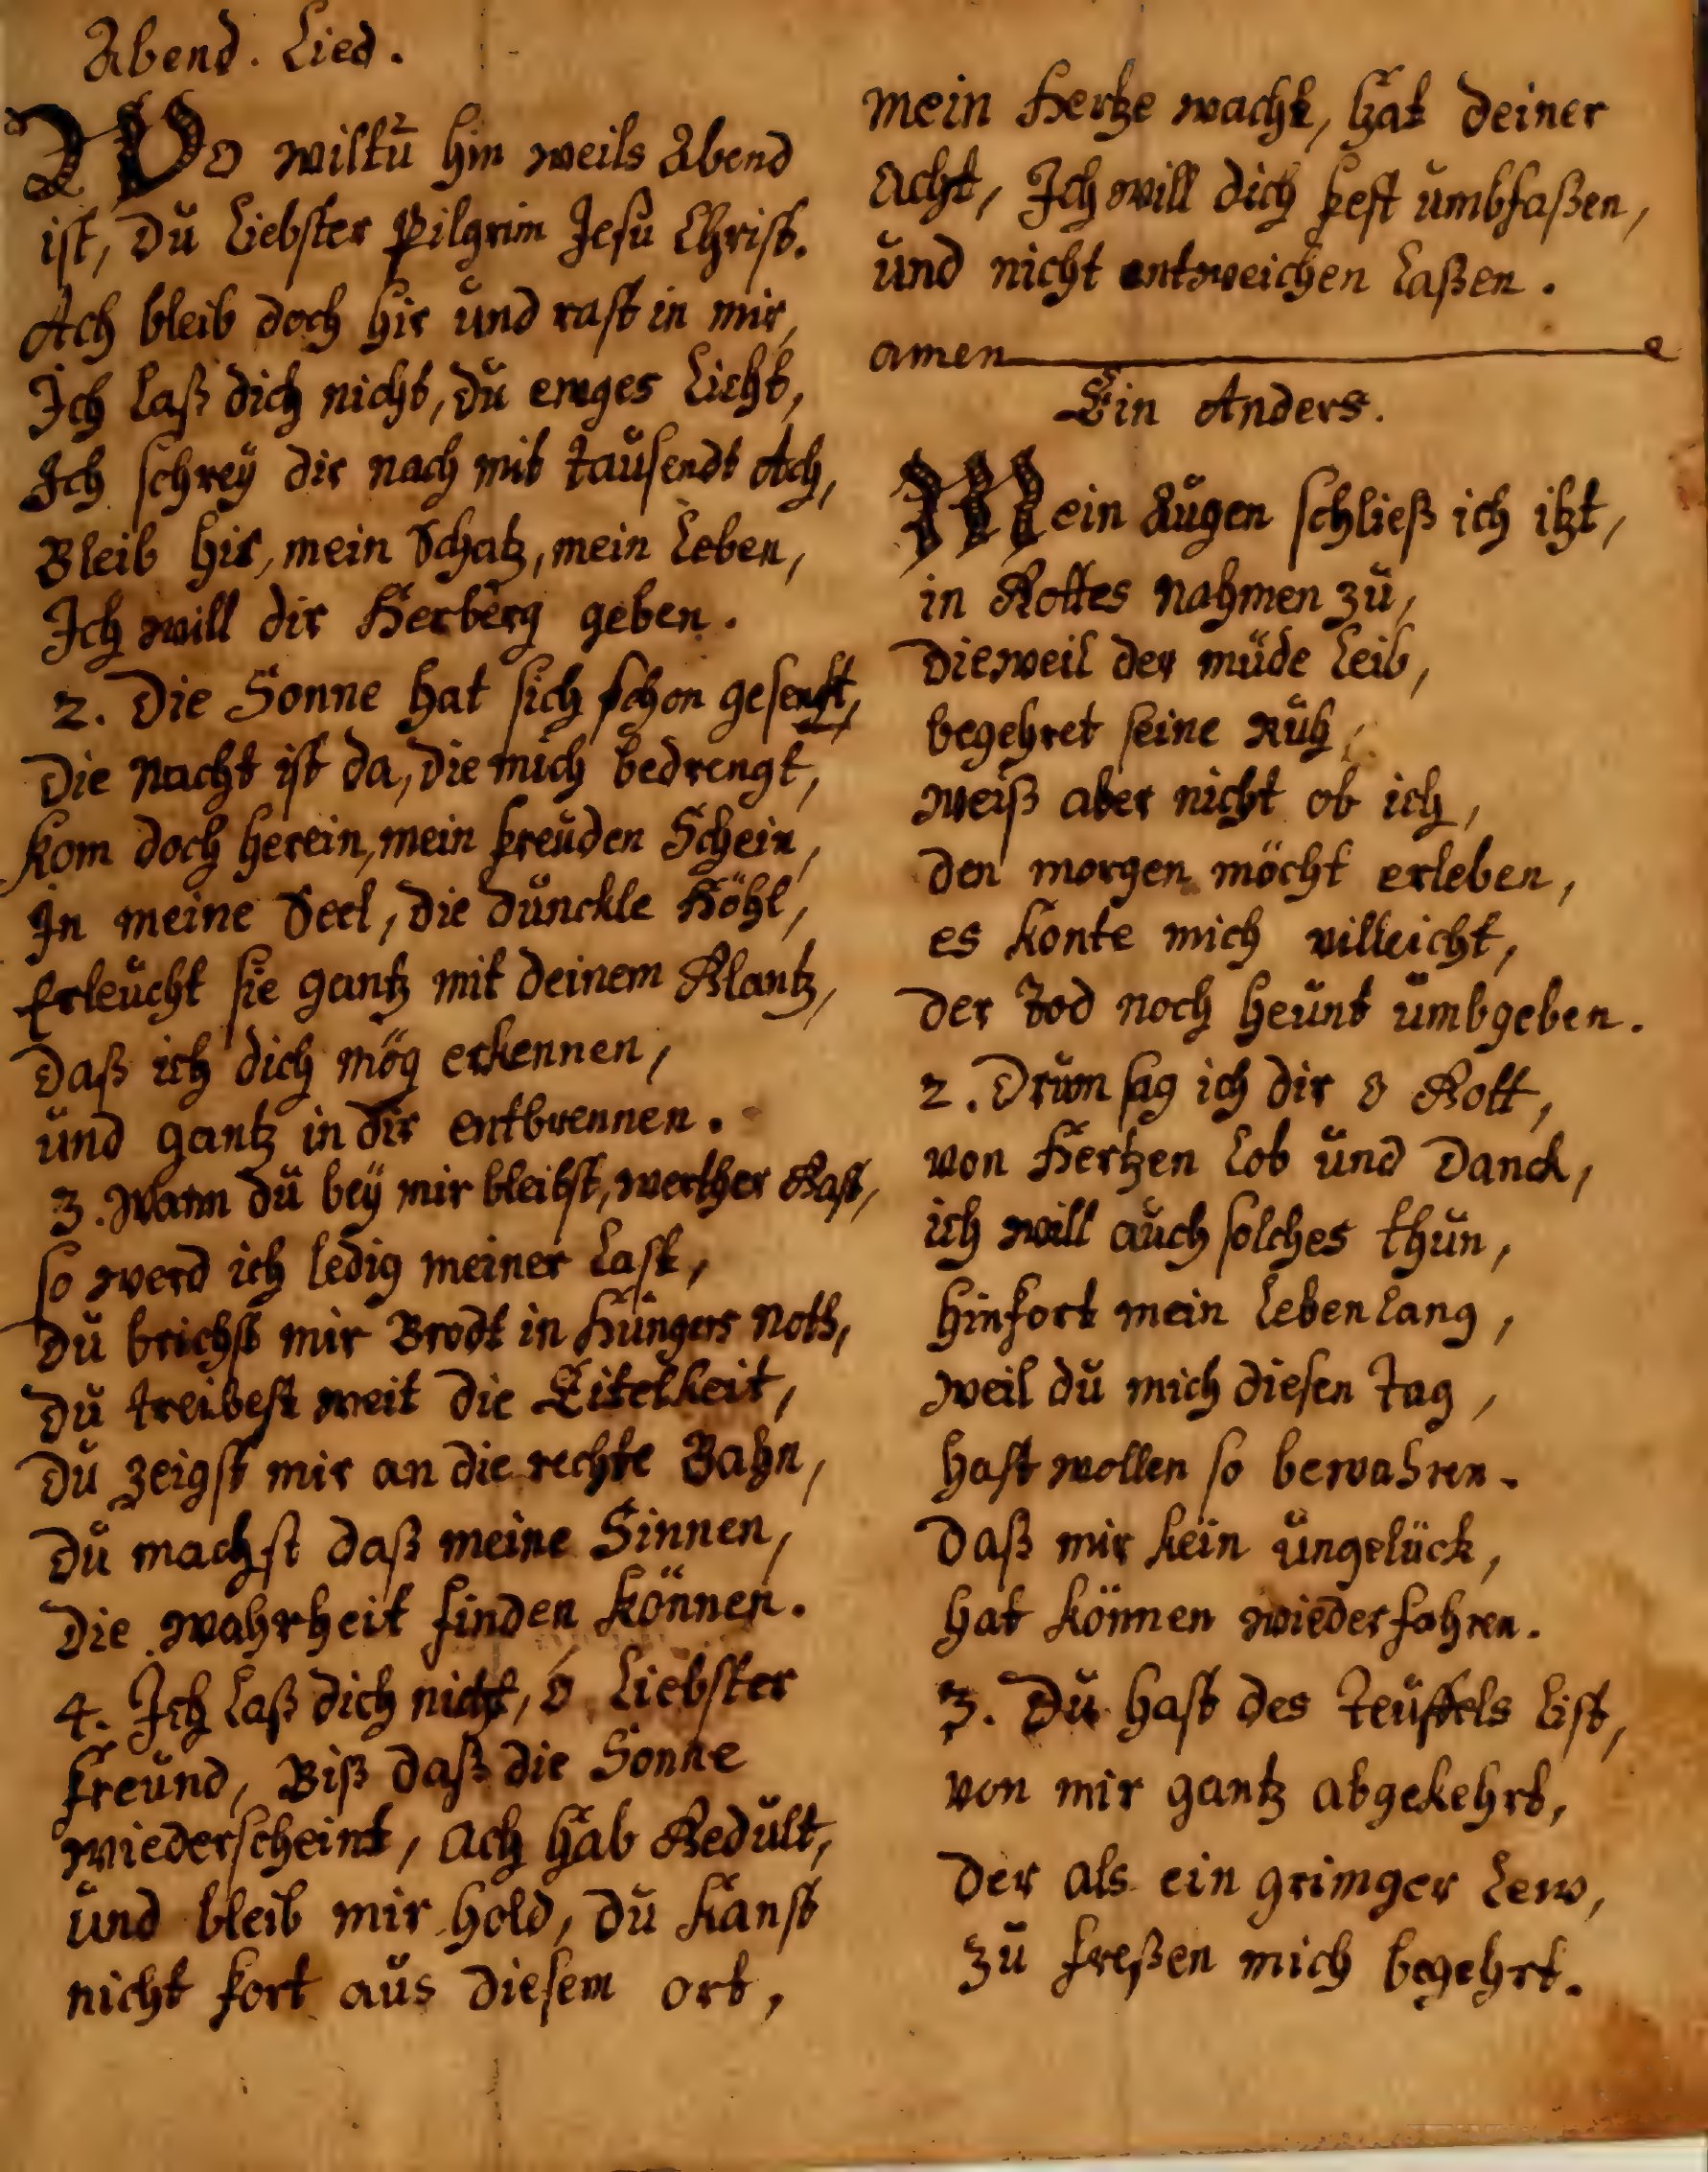 Abend. Lied.
Wo wiltu hin weils Abend
ist, Du Liebster Pilgrim Jesu Christ.
Ach bleib doch hir und rast in mir,
Ich laß dich nicht, du ewges Licht,
Ich schrey dir nach mit tausendt Ach,
Bleib hir, mein Schatz, mein Leben,
Ich will dir Herberg geben.
2. Die Sonne hat sich schon gesenkt,
Die Nacht ist da, die mich bedrengt,
kom doch herein, mein freuden Schein,
In meine Seel, die dunckle Höhl,
Erleucht sie gantz mit deinem Glantz,
Daß ich dich mög erkennen,
und gantz in dir entbrennen.
3. Wann du bey mir bleibst, werther Gast,
so werd ich ledig meiner Last,
Du brichst mir Brodt in Hungers Noth,
Du treibest weit die Eitelkeit,
Du zeigst mir an die rechte Bahn,
Du machst daß meine Sinnen,
Die Wahrheit finden können.
4. Ich Laß dich nicht, ó Liebster
freund, Biß daß die Sonne
wiederscheint, Ach hab Gedult,
und bleib mir hold, Du kanst
nicht fort aus diesem ort,
mein Hertze wacht, hat deiner
Acht, Ich will dich fest umbfaßen,
und nicht entweichen laßen.
amen
Ein Anders.
Mein Augen schließ ich itzt,
in Gottes Nahmen zu,
Dieweil der müde Leib,
begehret seine Ruh,
weiß aber nicht ob ich,
den morgen möcht erleben,
es konte mich villeicht,
der Tod noch heunt umbgeben.
2. Drum sag ich dir o Gott,
von Hertzen Lob und Danck,
ich will auch solches thun,
hinfort mein Lebenlang,
weil du mich diesen tag,
hast wollen so bewahren.
Daß mir kein ungelück,
hat können wiederfahren.
3. Du hast des teuffels list,
von mir gantz abgekehrt,
Der als ein grimger Lew,
zu freßen mich begehrt.